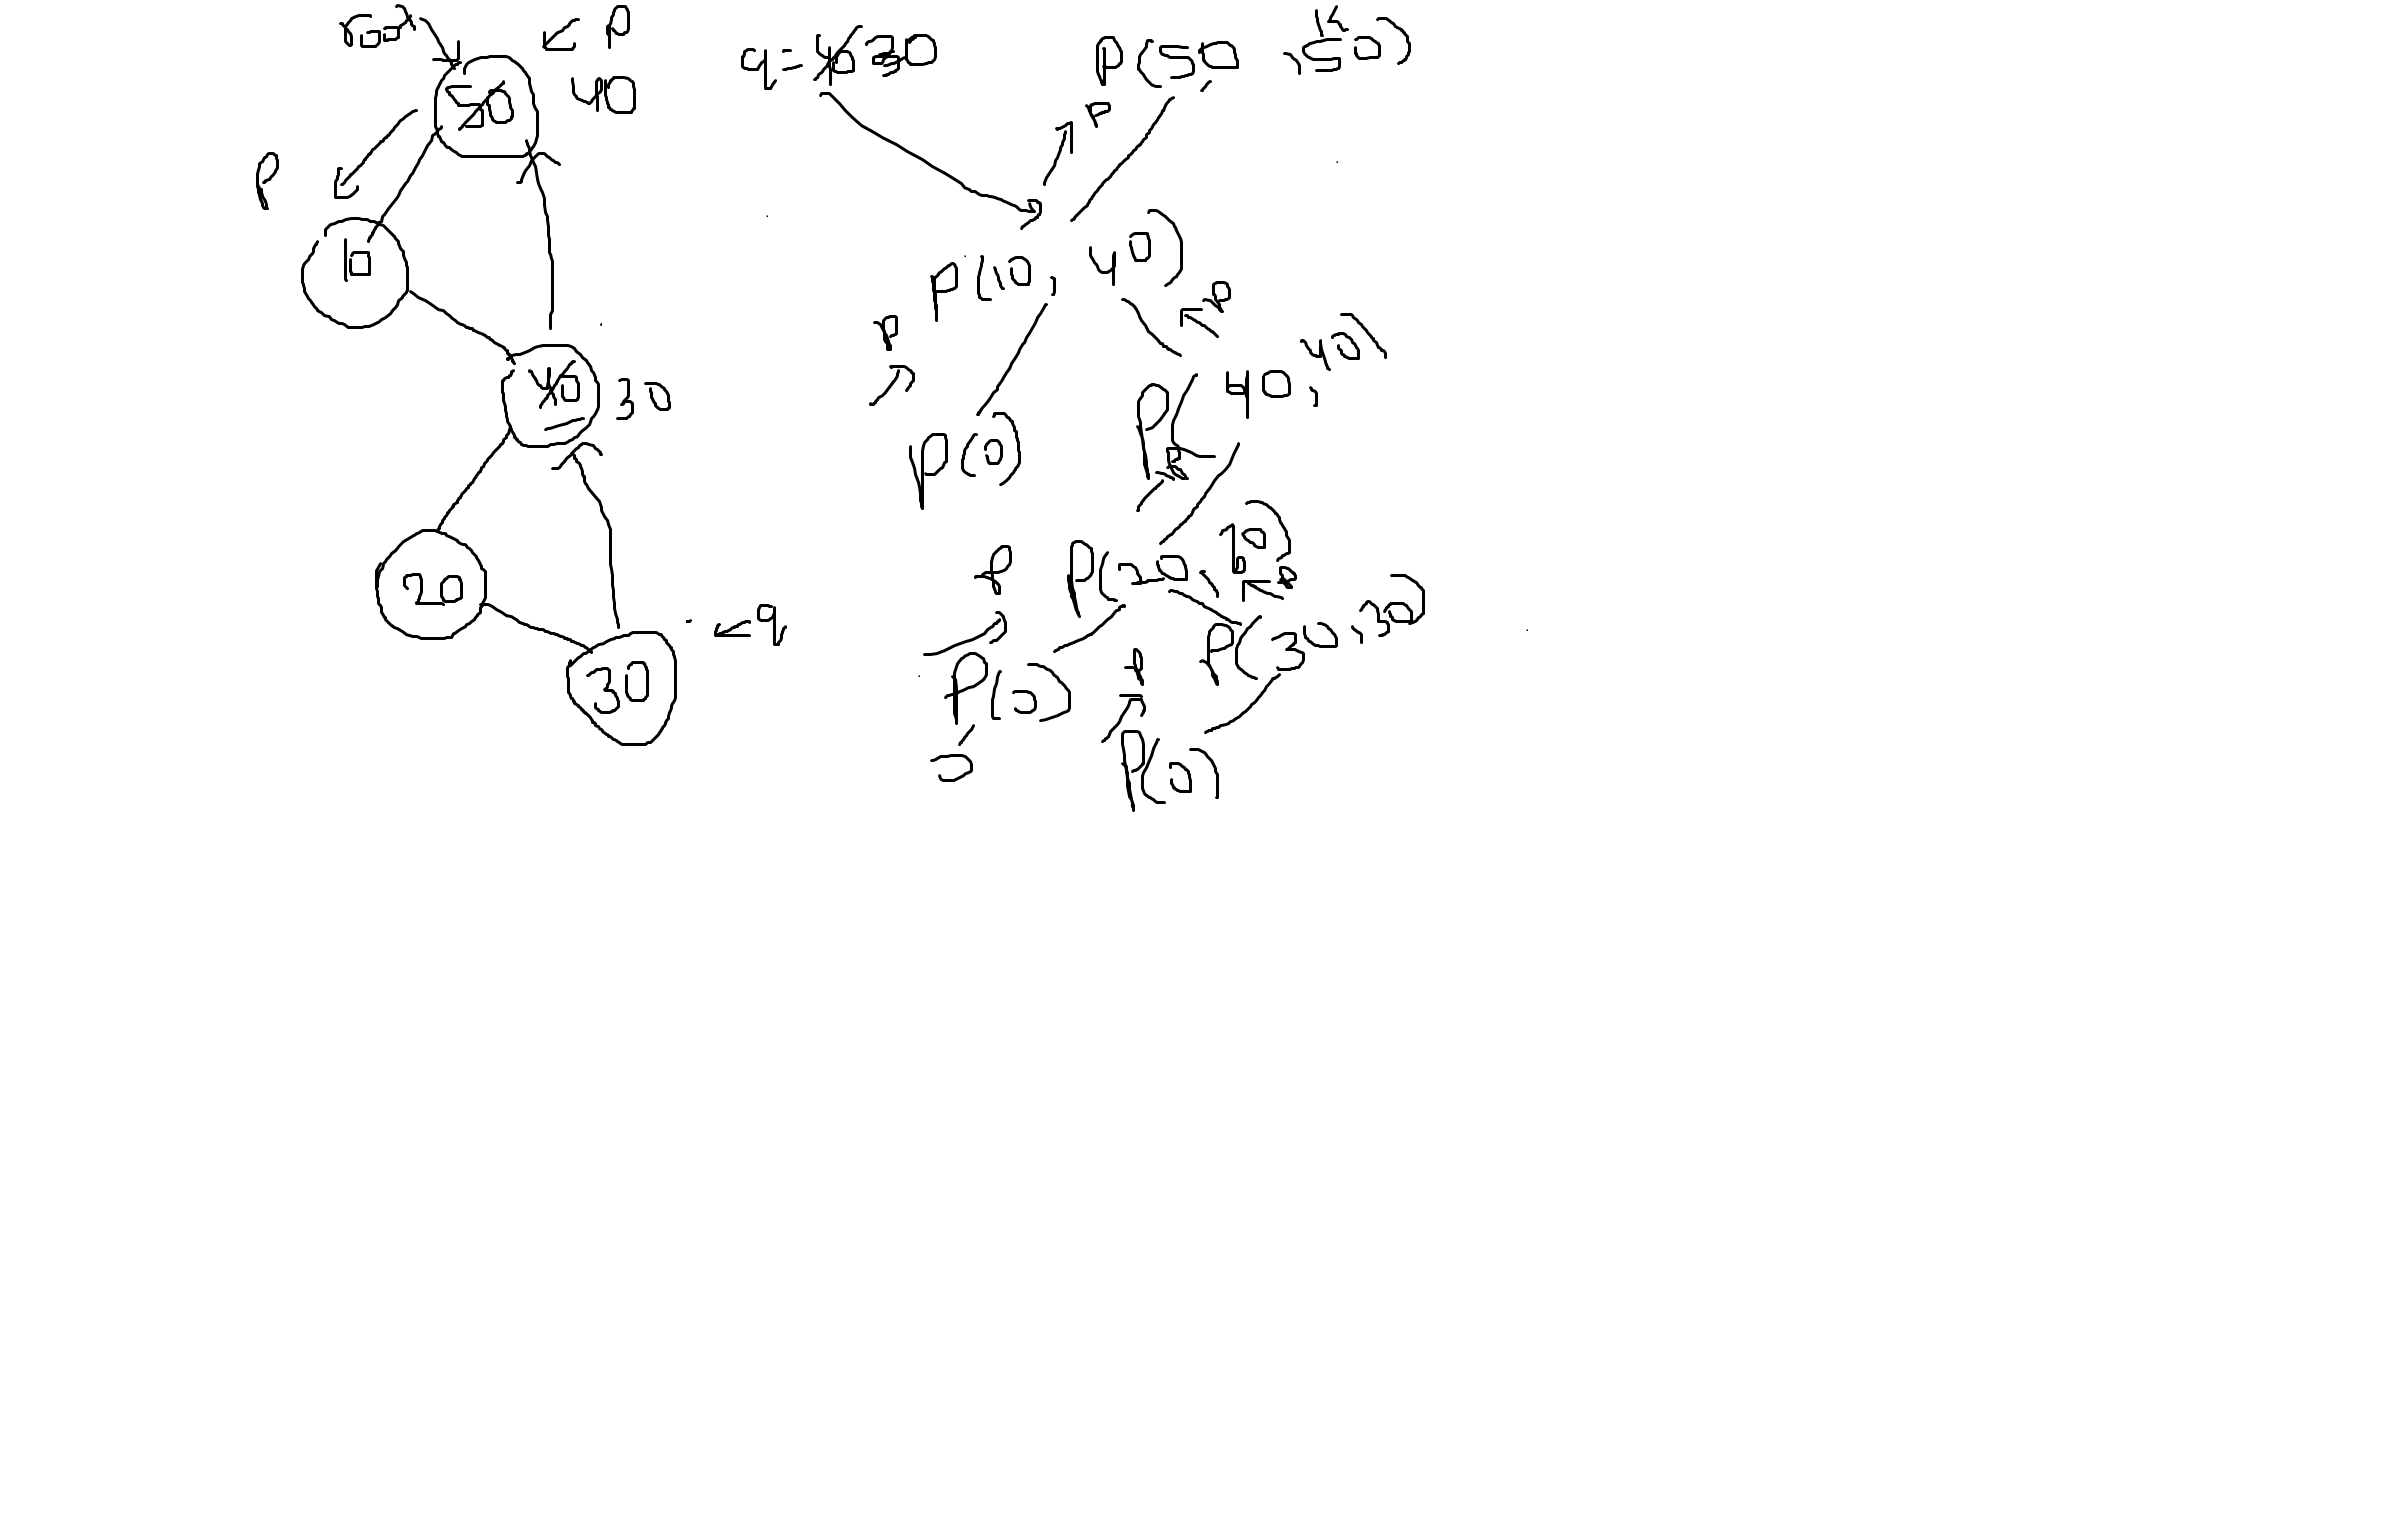 root
p
50 40
p
10
40 30
20
30
q
q = 40 30
p(50, 50)
K
p
p(10, 40)
p
p
p(0)
p(40, 40)
p
p(20, 
p
p
p(30, 30)
p(0)
0
p
p(0)